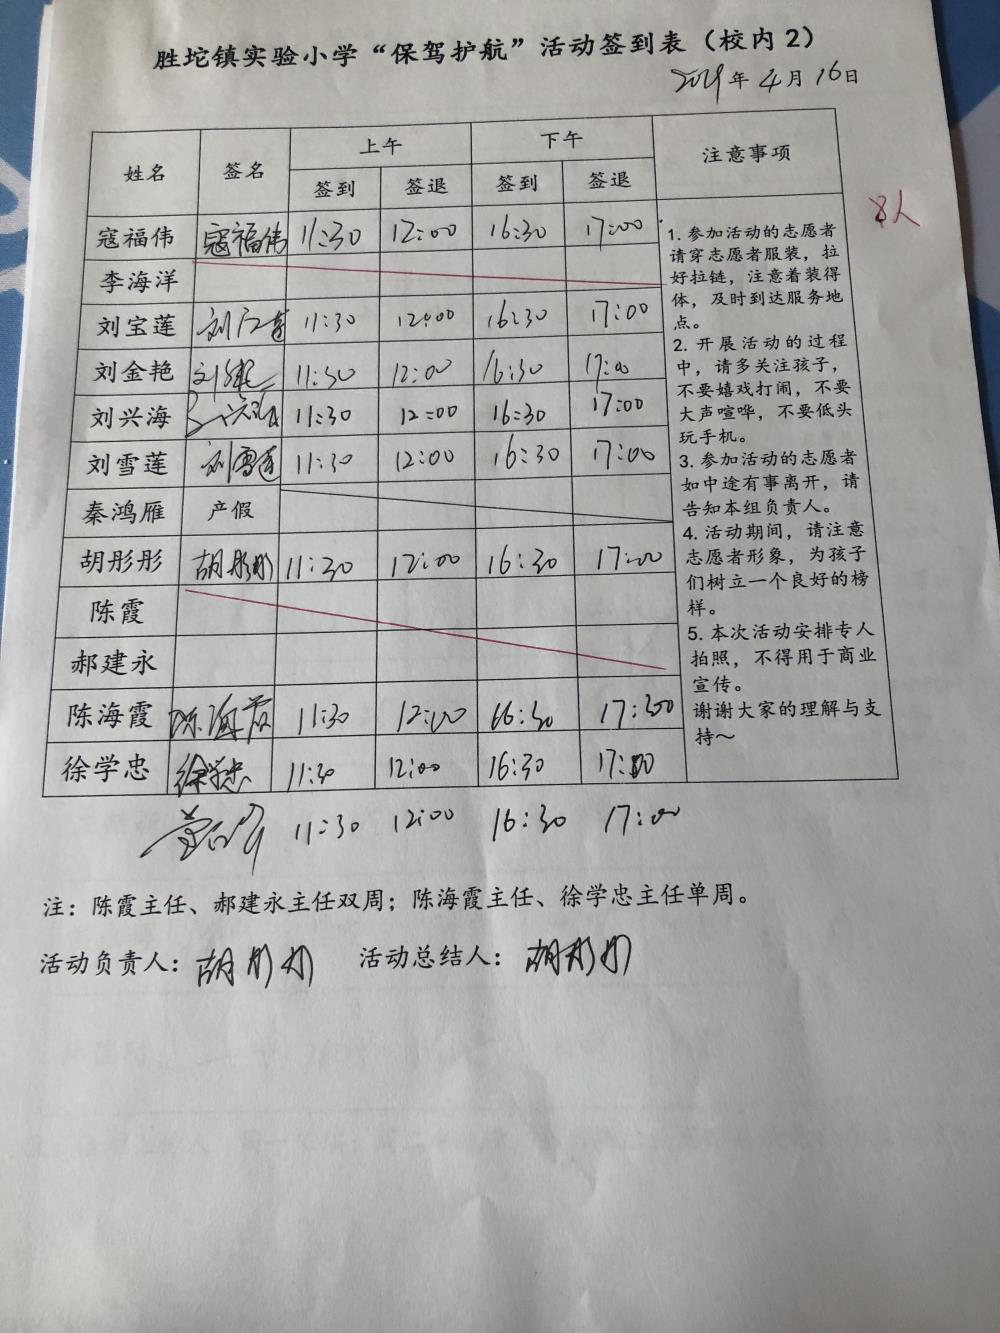 胜坨镇实验小学“保驾护航”活动签到表（校内2）
2019年4月16日
姓名 签名 上午 下午 注意事项
签到 签退 签到 签退
8人
寇福伟 寇福伟 11:30 12:00 16:30 17:00
李海洋
刘宝莲 11:30 12:00 16:30 17:00
刘金艳 11:30 12:00 16:30 17:00
刘兴海 11:30 12:00 16:30 17:00
刘雪莲 刘雪莲 11:30 12:00 16:30 17:00
秦鸿雁 产假
胡彤彤 胡彤彤 11:30 12:00 16:30 17:00
陈霞
郝建永
陈海霞 陈海霞 11:30 12:00 16:30 17:300
徐学忠 徐学忠 11:30 12:00 16:30 17:00
11:30 12:00 16:30 17:00
1. 参加活动的志愿者
请穿志愿者服装，拉
好拉链，注意着装得
体，及时到达服务地
点。
2. 开展活动的过程
中，请多关注孩子，
不要嬉戏打闹，不要
大声喧哗，不要低头
玩手机。
3. 参加活动的志愿者
如中途有事离开，请
告知本组负责人。
4. 活动期间，请注意
志愿者形象，为孩子
们树立一个良好的榜
样。
5. 本次活动安排专人
拍照，不得用于商业
宣传。
谢谢大家的理解与支
持～
注：陈霞主任、郝建永主任双周；陈海霞主任、徐学忠主任单周。
活动负责人：胡彤彤 活动总结人：胡彤彤